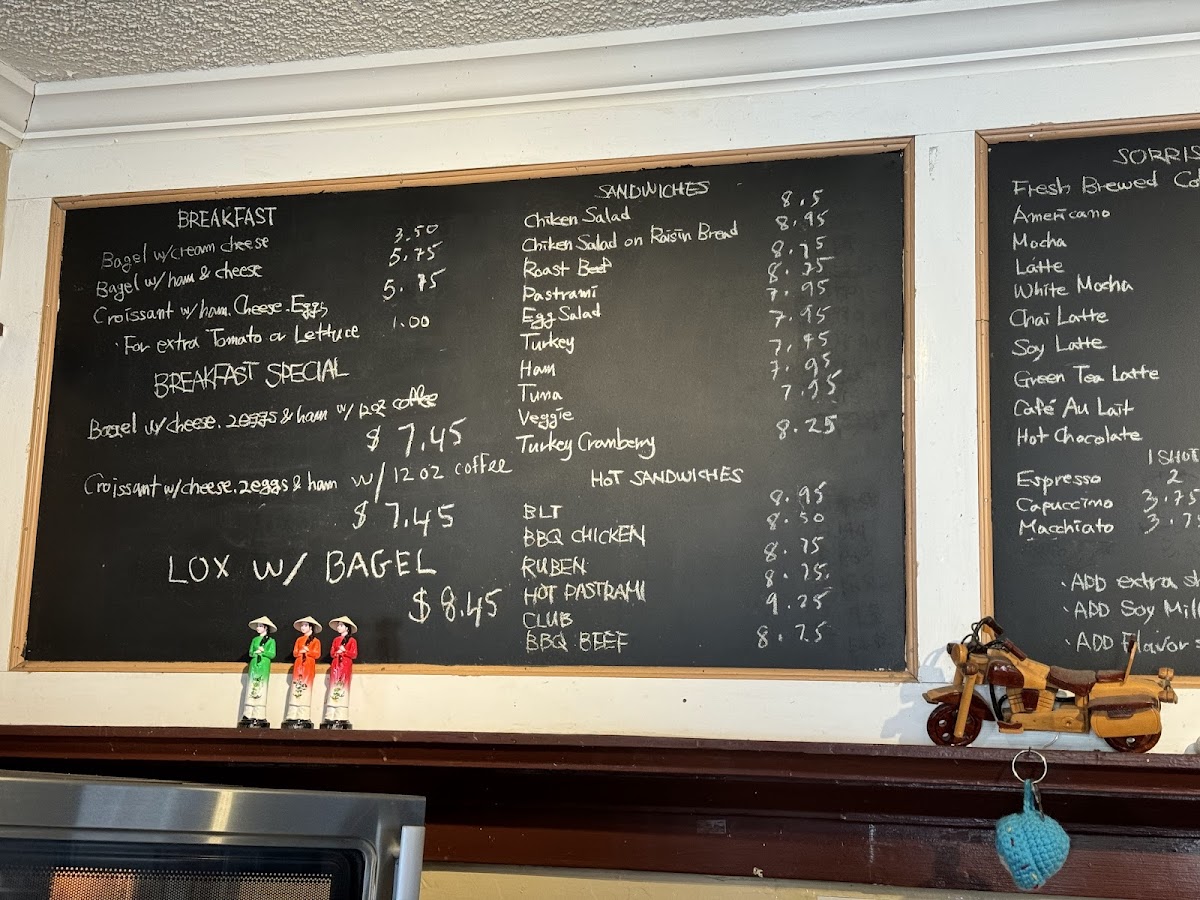 BREAKFAST
Bagel w/cream cheese 3.50
Bagel w/ ham & cheese 5.75
Croissant w/ham. Cheese. Eggs 5.75
·For extra Tomato or Lettuce 1.00
BREAKFAST SPECIAL
Bagel w/cheese. 2eggs & ham w/ 12oz coffee
$ 7.45
Croissant w/cheese. 2eggs & ham w/ 12oz coffee
$ 7.45
LOX W/ BAGEL
$ 8.45
SANDWICHES
Chiken Salad 8.5
Chiken Salad on Raisin Bread 8.95
Roast Beef 8.75
Pastrami 8.75
Egg Salad 7.95
Turkey 7.95
Ham 7.45
Tuna 7.95
Veggie 7.95
Turkey Cranberry 8.25
HOT SANDWICHES
BLT 8.95
BBQ CHICKEN 8.50
RUBEN 8.75
HOT PASTRAMI 8.75
CLUB 9.25
BBQ BEEF 8.75
SORRIS
Fresh Brewed Co
Americano
Mocha
Latte
White Mocha
Chai Latte
Soy Latte
Green Tea Latte
Café Au Lait
Hot Chocolate
1 SHOT
Espresso 2
Capuccino 3.75
Macchiato 3.7
·ADD extra sh
·ADD Soy Mil
·ADD Flavor s